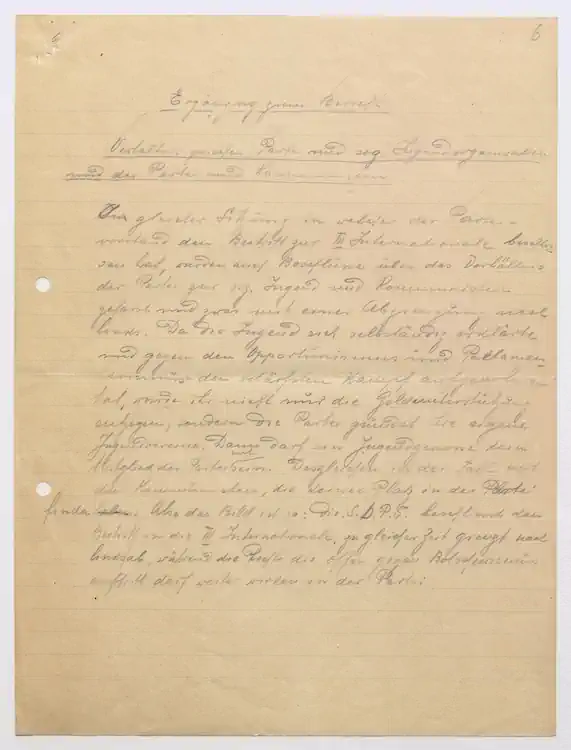 6
Ergänzung zum Bericht.
Verhältn. zwischen Partei und sog. Jugendorganisation
und der Partei und Kommunisten
In gleicher Sitzung in welcher der Partei-
vorstand den Beitritt zur III Internationale beschlos
sen hat, wurden auch Beschlüsse über das Verhältnis
der Partei zur sog. Jugend und Kommunisten
gefasst und zwar mit einer Abgrenzung nach
links. Da die Jugend sich selbständig erklärte
und gegen den Opportunismus und Parlamen-
tarismus den schärfsten Kampf
hat, wurde ihr nicht nur die Geldunterstützung
entzogen, sondern die Partei gründet sie eigene
Jugendvereine. Dann darf ein Jugendgenosse kein
Mitglied der Partei sein. Desgleichen ist der Fall mit
die Kommunisten, die keinen Platz in der Partei
finden. Also das Bild ist so: Die S.D.P.S. beschliesst den
Beitritt in die III Internationale, zu gleicher Zeit grenzt nach
links ab, während die Rechte die offen gegen Bolschewismus
auftritt darf weiter wirken in der Partei.